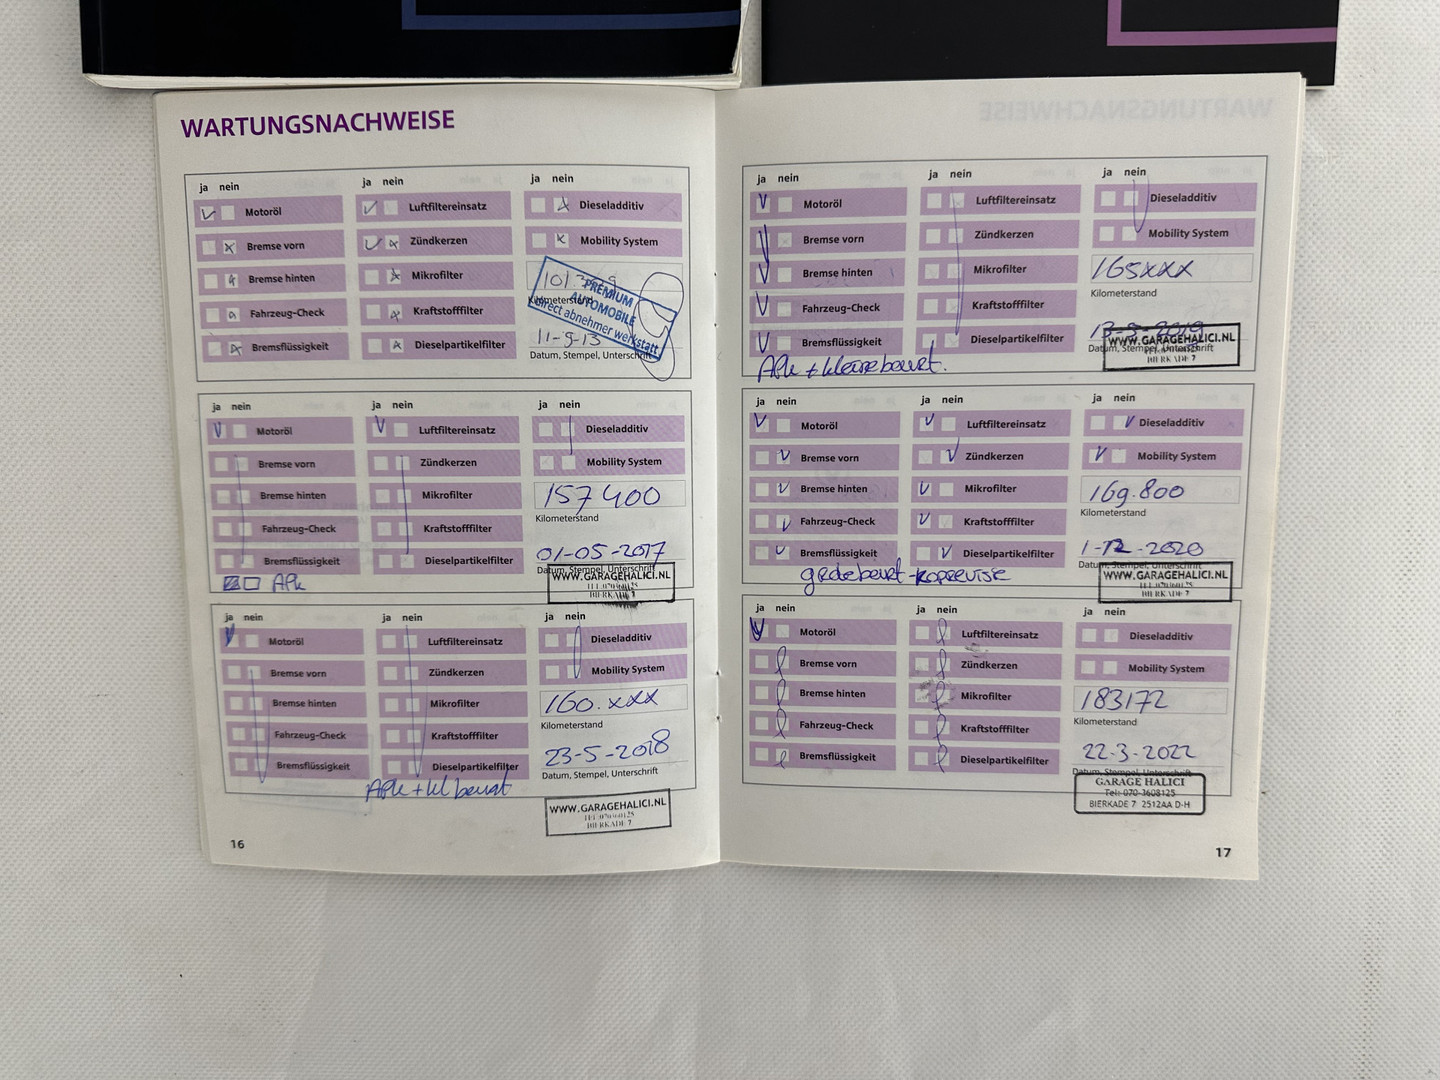 WARTUNGSNACHWEISE
ja nein
Motoröl
Bremse vorn
Bremse hinten
Fahrzeug-Check
Bremsflüssigkeit
ja nein
Luftfiltereinsatz
Zündkerzen
Mikrofilter
Kraftstofffilter
Dieselpartikelfilter
ja nein
Dieseladditiv
Mobility System
Kilometerstand
PREMIUM
AUTOMOBILE
direct abnehmer werkstatt
11-9-13
Datum, Stempel, Unterschrift
ja nein
Motoröl
Bremse vorn
Bremse hinten
Fahrzeug-Check
Bremsflüssigkeit
APK
ja nein
Luftfiltereinsatz
Zündkerzen
Mikrofilter
Kraftstofffilter
Dieselpartikelfilter
ja nein
Dieseladditiv
Mobility System
157400
Kilometerstand
01-05-2017
Datum, Stempel, Unterschrift
WWW.GARAGEHALICI.NL
BIERKADE 7
ja nein
Motoröl
Bremse vorn
Bremse hinten
Fahrzeug-Check
Bremsflüssigkeit
ja nein
Luftfiltereinsatz
Zündkerzen
Mikrofilter
Kraftstofffilter
Dieselpartikelfilter
APK + kl beurt
ja nein
Dieseladditiv
Mobility System
160.xxx
Kilometerstand
23-5-2018
Datum, Stempel, Unterschrift
WWW.GARAGEHALICI.NL
BIERKADE 7
16
WARTUNGSNACHWEISE
ja nein
Motoröl
Bremse vorn
Bremse hinten
Fahrzeug-Check
Bremsflüssigkeit
APK + kleine beurt.
ja nein
Luftfiltereinsatz
Zündkerzen
Mikrofilter
Kraftstofffilter
Dieselpartikelfilter
ja nein
Dieseladditiv
Mobility System
165xxx
Kilometerstand
13-5-2019
Datum, Stempel, Unterschrift
WWW.GARAGEHALICI.NL
BIERKADE 7
ja nein
Motoröl
Bremse vorn
Bremse hinten
Fahrzeug-Check
Bremsflüssigkeit
ja nein
Luftfiltereinsatz
Zündkerzen
Mikrofilter
Kraftstofffilter
Dieselpartikelfilter
grote beurt - koprevisie
ja nein
Dieseladditiv
Mobility System
169.800
Kilometerstand
1-12-2020
Datum, Stempel, Unterschrift
WWW.GARAGEHALICI.NL
BIERKADE 7
ja nein
Motoröl
Bremse vorn
Bremse hinten
Fahrzeug-Check
Bremsflüssigkeit
ja nein
Luftfiltereinsatz
Zündkerzen
Mikrofilter
Kraftstofffilter
Dieselpartikelfilter
ja nein
Dieseladditiv
Mobility System
183172
Kilometerstand
22-3-2022
Datum, Stempel, Unterschrift
GARAGE HALICI
Tel: 070-3608125
BIERKADE 7 2512AA D-H
17